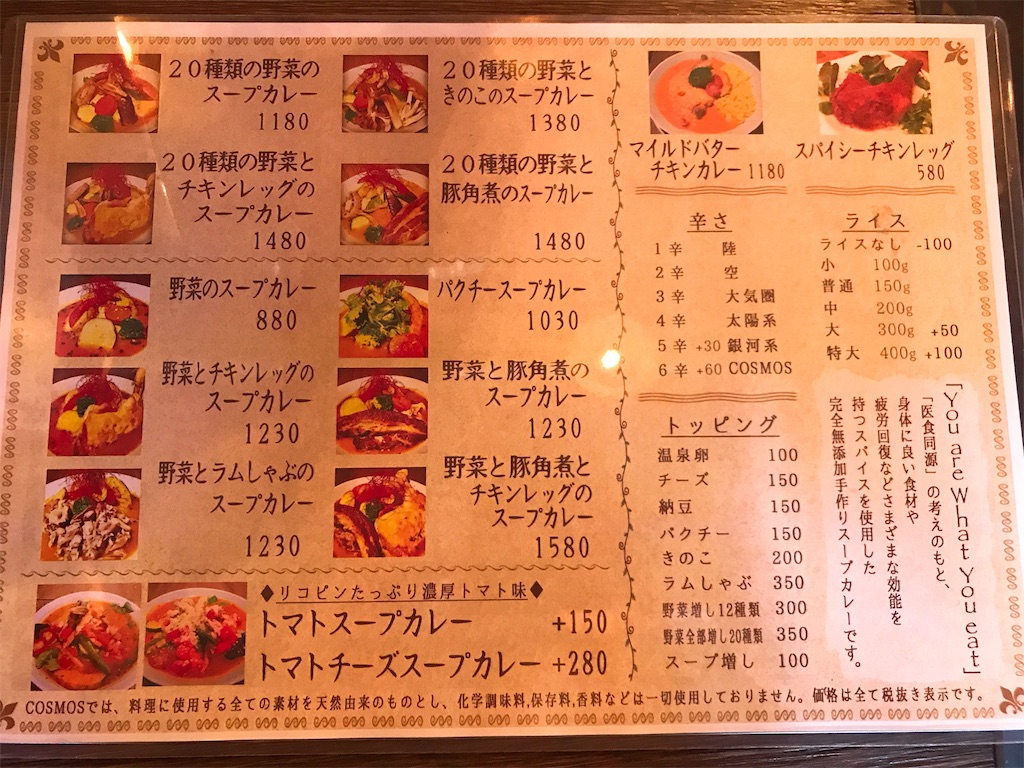 20種類の野菜の
スープカレー
1180
20種類の野菜と
きのこのスープカレー
1380
20種類の野菜と
チキンレッグの
スープカレー
1480
20種類の野菜と
豚角煮のスープカレー
1480
野菜のスープカレー
880
パクチースープカレー
1030
野菜とチキンレッグの
スープカレー
1230
野菜と豚角煮の
スープカレー
1230
野菜とラムしゃぶの
スープカレー
1230
野菜と豚角煮と
チキンレッグの
スープカレー
1580
◆リコピンたっぷり濃厚トマト味◆
トマトスープカレー +150
トマトチーズスープカレー +280
マイルドバター
チキンカレー 1180
スパイシーチキンレッグ
580
辛さ
1辛 陸
2辛 空
3辛 大気圏
4辛 太陽系
5辛 +30 銀河系
6辛 +60 COSMOS
ライス
ライスなし -100
小 100g
普通 150g
中 200g
大 300g +50
特大 400g +100
トッピング
温泉卵 100
チーズ 150
納豆 150
パクチー 150
きのこ 200
ラムしゃぶ 350
野菜増し12種類 300
野菜全部増し20種類 350
スープ増し 100
「You are What You eat」
「医食同源」の考えのもと、
身体に良い食材や
疲労回復などさまざまな効能を
持つスパイスを使用した
完全無添加手作りスープカレーです。
COSMOSでは、料理に使用する全ての素材を天然由来のものとし、化学調味料,保存料,香料などは一切使用しておりません。価格は全て税抜き表示です。